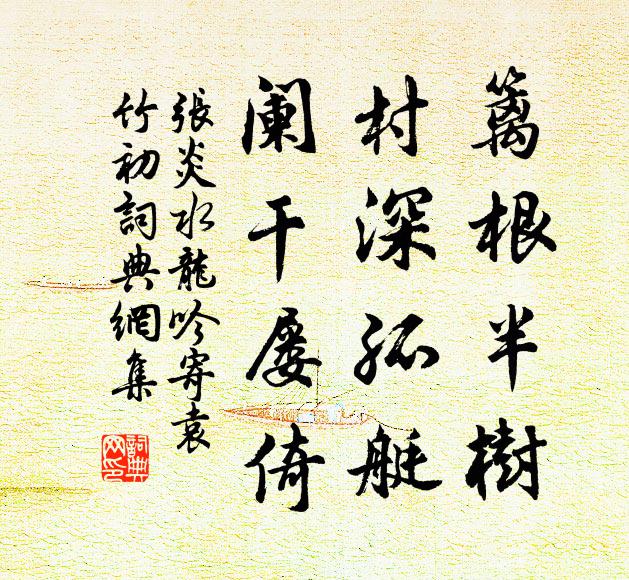 篱根半樹
村深孤艇
阑干屡倚
張炎水龍吟寄袁
竹初詞典網集
詞典网印